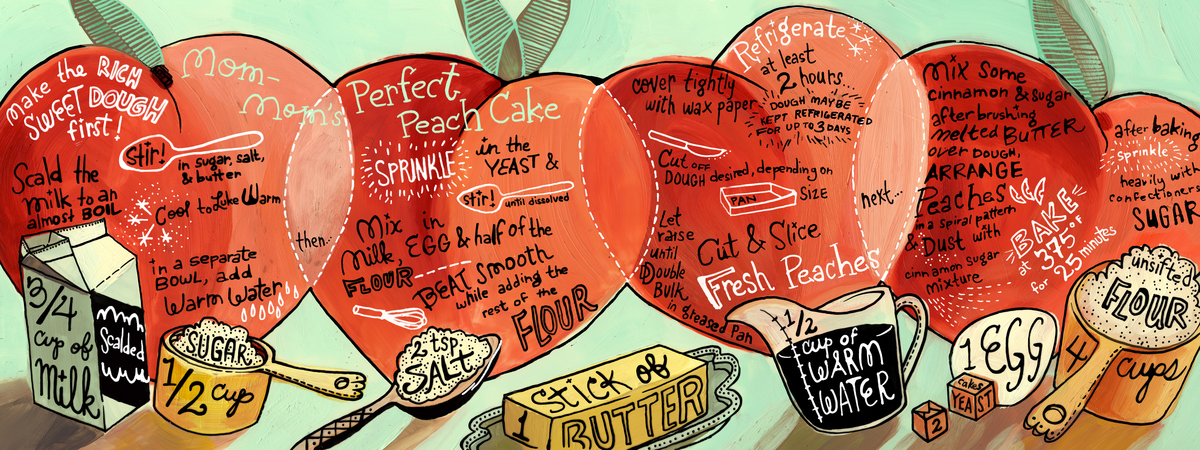 Mom-
Mom's
Perfect
Peach Cake
make
the RICH
SWEET DOUGH
first!
Scald the
milk to an
almost BOIL
stir!
in sugar, salt,
& butter
Cool to Luke Warm
in a separate
BOWL, add
Warm Water
then...
SPRINKLE
in the
YEAST &
stir!
until dissolved
Mix in
Milk, EGG & half of the
FLOUR
BEAT smooth
while adding the
rest of the
FLOUR
cover tightly
with wax paper
Refrigerate
at least
2 hours.
DOUGH MAY BE
KEPT REFRIGERATED
FOR UP TO 3 DAYS
Cut OFF
DOUGH desired, depending on
PAN
SIZE
Let
raise
until
Double
Bulk
in greased Pan
Cut & Slice
Fresh Peaches
next...
Mix Some
cinnamon & sugar
after brushing
melted BUTTER
over DOUGH,
ARRANGE
Peaches
in a spiral pattern
& Dust with
cinnamon sugar
mixture
BAKE
at 375° OF
for 25 minutes
after baking
sprinkle
heavily with
confectioners
SUGAR
3/4
cup of
Milk
Scalded
SUGAR
1/2 cup
2 tsp
SALT
1 stick of
BUTTER
1/2
cup of
WARM
WATER
2
cakes
YEAST
1 EGG
unsifted
FLOUR
4 cups